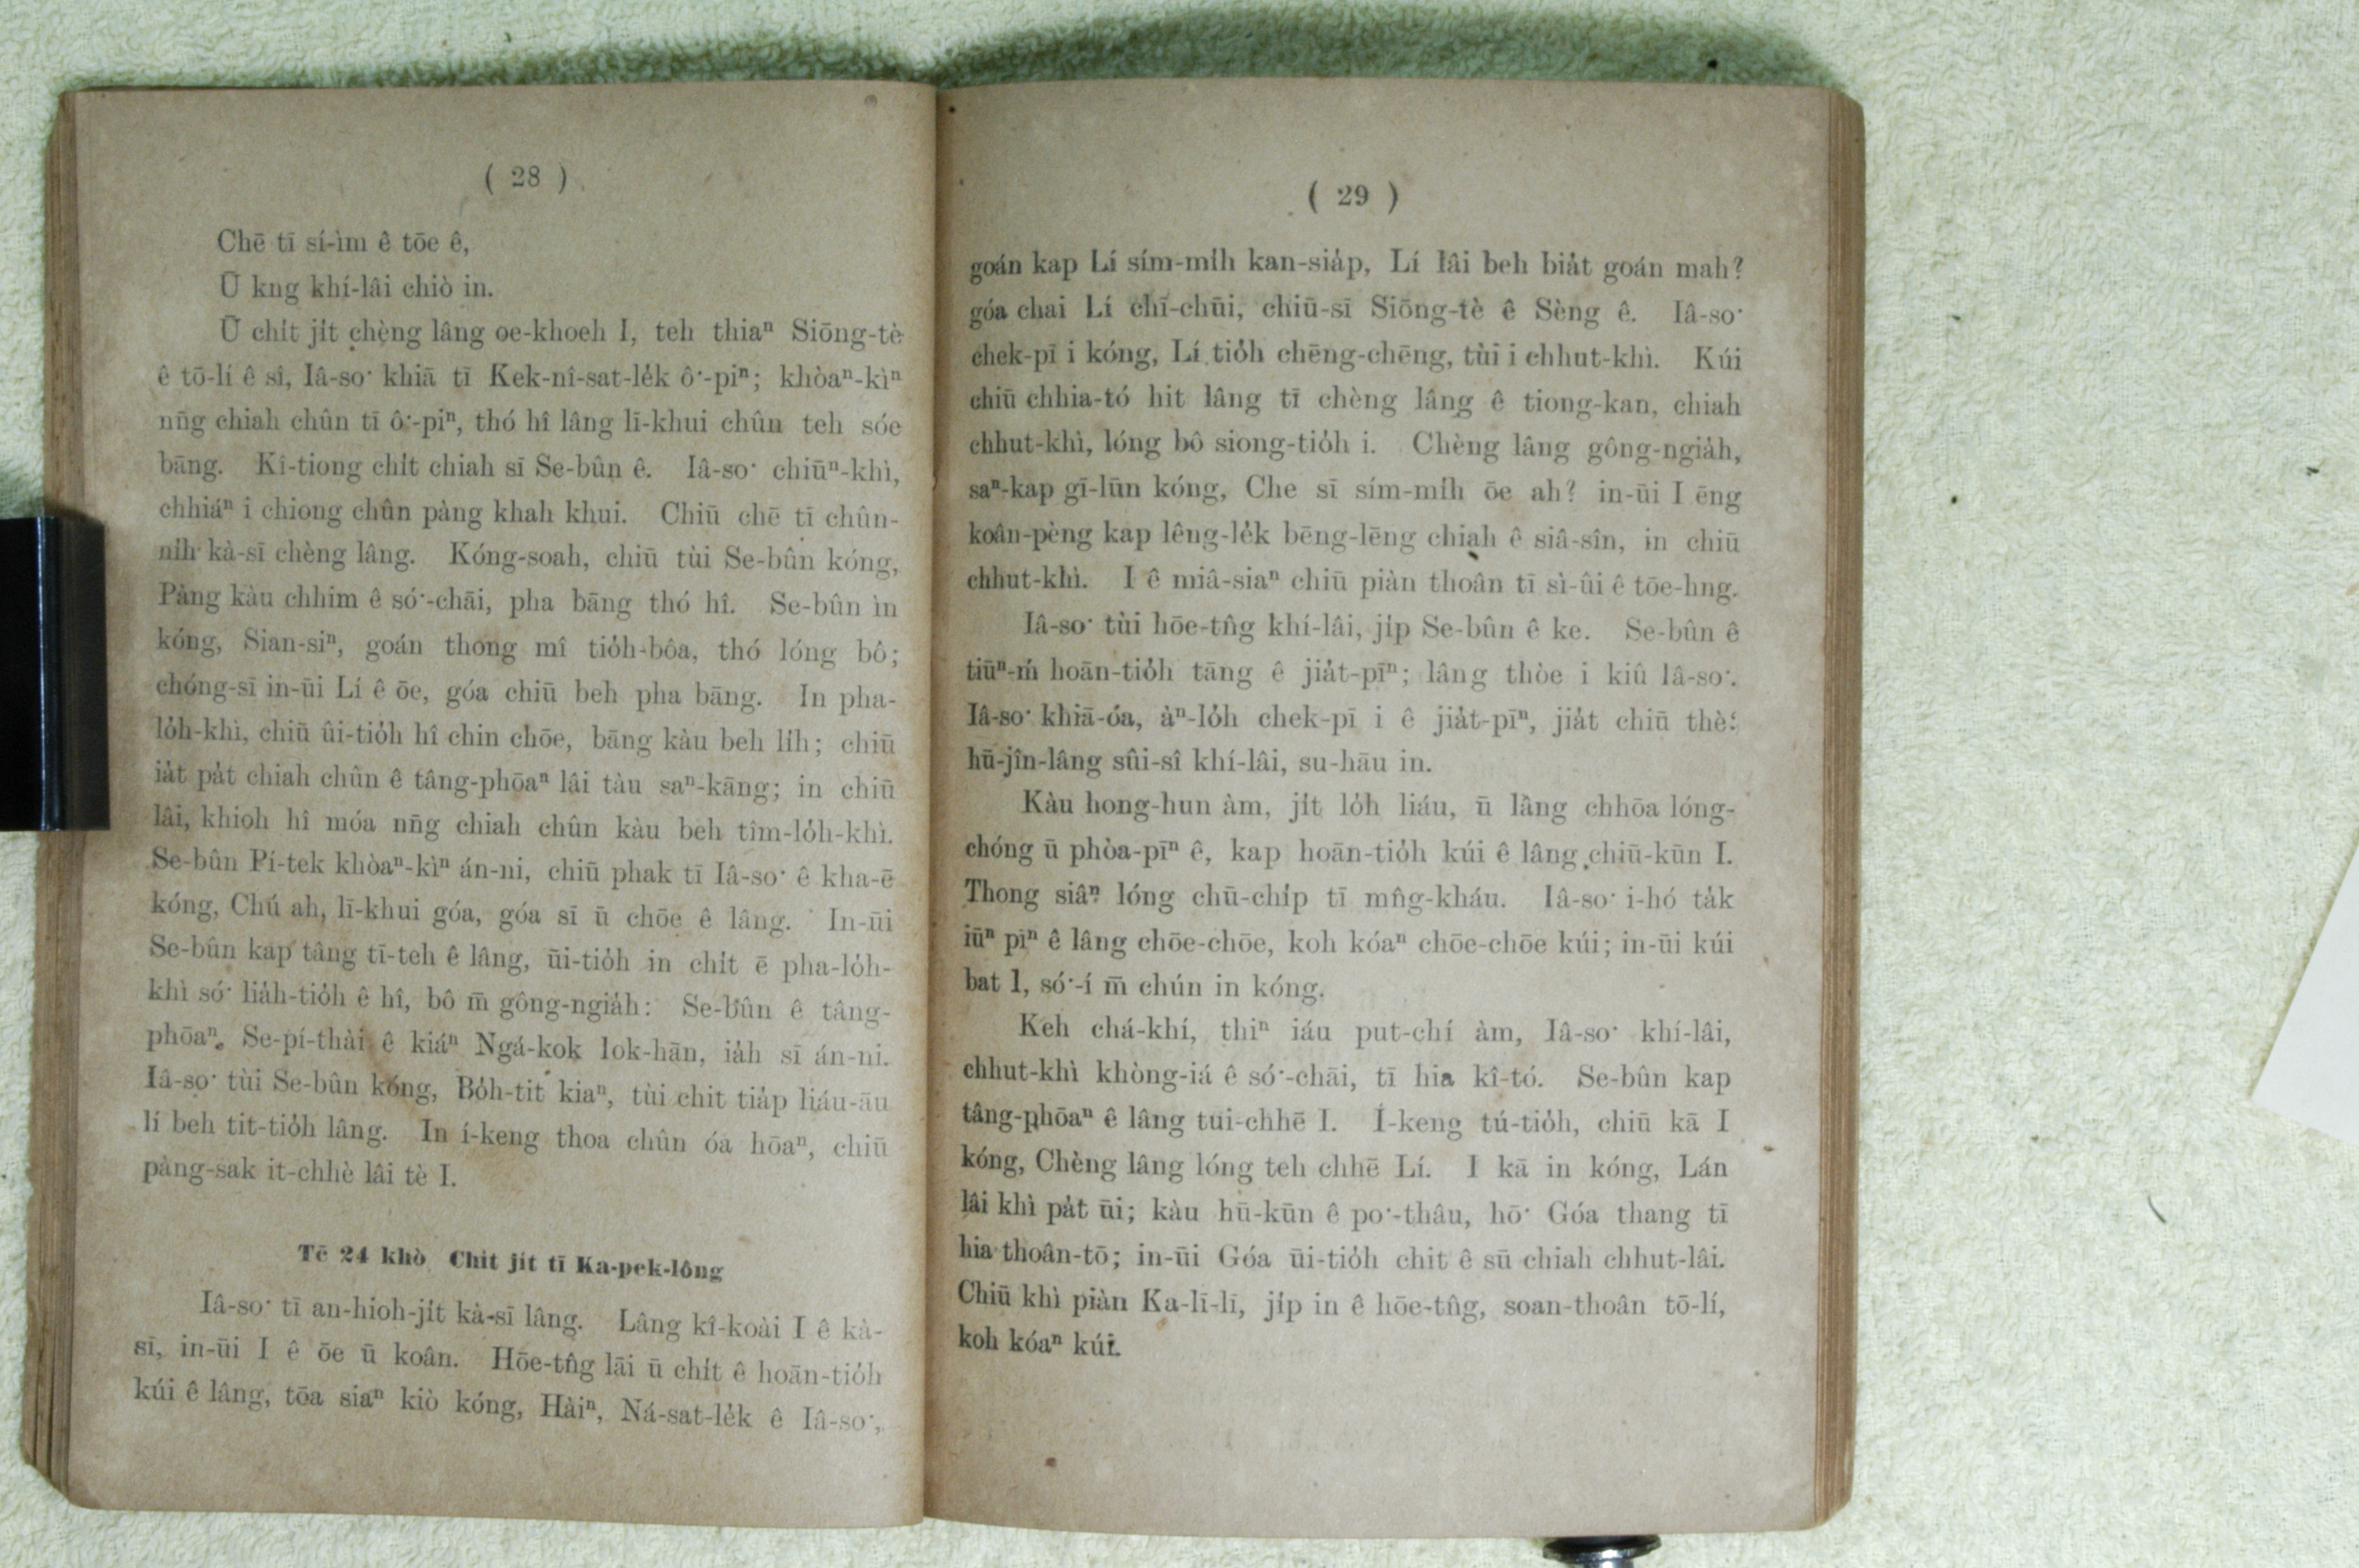 ( 28 )
Chē tī sí-ìm ê tōe ê,
Ū kng khí-lâi chiò in.
Ū chi̍t ji̍t chèng lâng oe-khoeh I, teh thiaⁿ Siōng-tè
ê tō-lí ê sî, Iâ-so͘ khiā tī Kek-nî-sat-le̍k ô͘-piⁿ; khòaⁿ-kìⁿ
nn̄g chiah chûn tī ô͘-piⁿ, thó hî lâng lī-khui chûn teh sóe
bāng. Kî-tiong chi̍t chiah sī Se-bûn ê. Iâ-so͘ chiūⁿ-khì,
chhiáⁿ i chiong chûn pàng khah khui. Chiū chē tī chûn-
ni̍h kà-sī chèng lâng. Kóng-soah, chiū tùi Se-bûn kóng,
Pàng kàu chhim ê só͘-chāi, pha bāng thó hî. Se-bûn ìn
kóng, Sian-siⁿ, goán thong mî tio̍h-bôa, thó lóng bô;
chóng-sī in-ūi Lí ê ōe, góa chiū beh pha bāng. In pha-
lo̍h-khì, chiū ûi-tio̍h hî chin chōe, bāng kàu beh li̍h; chiū
ia̍t pa̍t chiah chûn ê tâng-phōaⁿ lâi tàu saⁿ-kāng; in chiū
lâi, khioh hî móa nn̄g chiah chûn kàu beh tîm-lo̍h-khì.
Se-bûn Pí-tek khòaⁿ-kìⁿ án-ni, chiū phak tī Iâ-so͘ ê kha-ē
kóng, Chú ah, lī-khui góa, góa sī ū chōe ê lâng. In-ūi
Se-bûn kap tâng tī-teh ê lâng, ūi-tio̍h in chi̍t ē pha-lo̍h-
khì só͘ lia̍h-tio̍h ê hî, bô m̄ gông-ngia̍h: Se-bûn ê tâng-
phōaⁿ, Se-pí-thài ê kiáⁿ Ngá-kok Iok-hān, ia̍h sī án-ni.
Iâ-so͘ tùi Se-bûn kóng, Bo̍h-tit kiaⁿ, tùi chit tia̍p liáu-āu
lí beh tit-tio̍h lâng. In í-keng thoa chûn óa hōaⁿ, chiū
pàng-sak it-chhè lâi tè I.
Tē 24 khò Chi̍t ji̍t tī Ka-pek-lông
Iâ-so͘ tī an-hioh-ji̍t kà-sī lâng. Lâng kî-koài I ê kà-
sī, in-ūi I ê ōe ū koân. Hōe-tn̂g lāi ū chi̍t ê hoān-tio̍h
kúi ê lâng, tōa siaⁿ kiò kóng, Hàiⁿ, Ná-sat-le̍k ê Iâ-so͘,
( 29 )
goán kap Lí sím-mi̍h kan-sia̍p, Lí lâi beh bia̍t goán mah?
góa chai Lí chī-chūi, chiū-sī Siōng-tè ê Sèng ê. Iâ-so͘
chek-pī i kóng, Lí tio̍h chēng-chēng, tùi i chhut-khì. Kúi
chiū chhia-tó hit lâng tī chèng lâng ê tiong-kan, chiah
chhut-khì, lóng bô siong-tio̍h i. Chèng lâng gông-ngia̍h,
saⁿ-kap gī-lūn kóng, Che sī sím-mi̍h ōe ah? in-ūi I ēng
koân-pèng kap lêng-le̍k bēng-lēng chiah ê siâ-sîn, in chiū
chhut-khì. I ê miâ-siaⁿ chiū piàn thoân tī sì-ûi ê tōe-hng.
Iâ-so͘ tùi hōe-tn̂g khí-lâi, ji̍p Se-bûn ê ke. Se-bûn ê
tiūⁿ-ḿ hoān-tio̍h tāng ê jia̍t-pīⁿ; lâng thòe i kiû Iâ-so͘.
Iâ-so͘ khiā-óa, àⁿ-lo̍h chek-pī i ê jia̍t-pīⁿ, jia̍t chiū thè;
hū-jîn-lâng sûi-sî khí-lâi, su-hāu in.
Kàu hong-hun àm, ji̍t lo̍h liáu, ū lâng chhōa lóng-
chóng ū phòa-pīⁿ ê, kap hoān-tio̍h kúi ê lâng chiū-kūn I.
Thong siâⁿ lóng chū-chi̍p tī mn̂g-kháu. Iâ-so͘ i-hó ta̍k
iūⁿ pīⁿ ê lâng chōe-chōe, koh kóaⁿ chōe-chōe kúi; in-ūi kúi
bat I, só͘-í m̄ chún in kóng.
Keh chá-khí, thiⁿ iáu put-chí àm, Iâ-so͘ khí-lâi,
chhut-khì khòng-iá ê só͘-chāi, tī hia kî-tó. Se-bûn kap
tâng-phōaⁿ ê lâng tui-chhē I. Í-keng tú-tio̍h, chiū kā I
kóng, Chèng lâng lóng teh chhē Lí. I kā in kóng, Lán
lâi khì pa̍t ūi; kàu hū-kūn ê po͘-thâu, hō͘ Góa thang tī
hia thoân-tō; in-ūi Góa ūi-tio̍h chit ê sū chiah chhut-lâi.
Chiū khì piàn Ka-lī-lī, ji̍p in ê hōe-tn̂g, soan-thoân tō-lí,
koh kóaⁿ kúi.